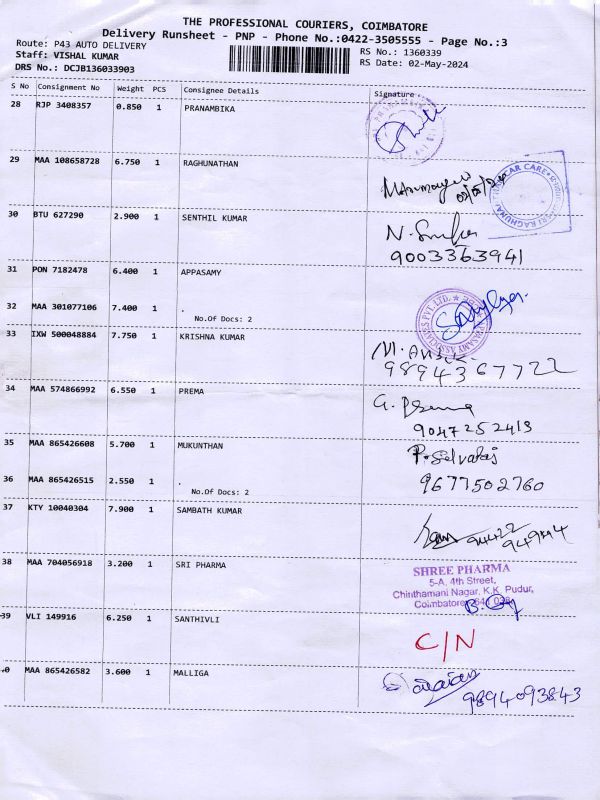 THE PROFESSIONAL COURIERS, COIMBATORE
Delivery Runsheet - PNP - Phone No.:0422-3505555 - Page No.:3
Route: P43 AUTO DELIVERY
Staff: VISHAL KUMAR
DRS No.: DCJB136033903
RS No.: 1360339
RS Date: 02-May-2024
S No Consignment No Weight PCS Consignee Details Signature
28 RJP 3408357 0.850 1 PRANAMBIKA
29 MAA 108658728 6.750 1 RAGHUNATHAN
30 BTU 627290 2.900 1 SENTHIL KUMAR
9003363941
31 PON 7182478 6.400 1 APPASAMY
32 MAA 301077106 7.400 1 .
No.Of Docs: 2
33 IXW 500048884 7.750 1 KRISHNA KUMAR
9894367722
34 MAA 574866992 6.550 1 PREMA
9047252413
35 MAA 865426608 5.700 1 MUKUNTHAN
P. Selvaraj
36 MAA 865426515 2.550 1 .
No.Of Docs: 2
9677502760
37 KTY 10040304 7.900 1 SAMBATH KUMAR
38 MAA 704056918 3.200 1 SRI PHARMA
SHREE PHARMA
5-A, 4th Street,
Chinthamani Nagar, K.K. Pudur,
Coimbatore
39 VLI 149916 6.250 1 SANTHIVLI
C/N
MAA 865426582 3.600 1 MALLIGA
9894093843